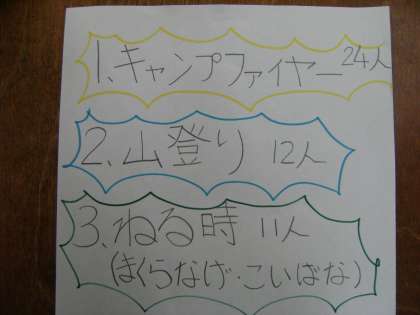 1、キャンプファイヤー 24人
2、山登り 12人
3、ねる時 11人
(まくらなげ・こいばな)